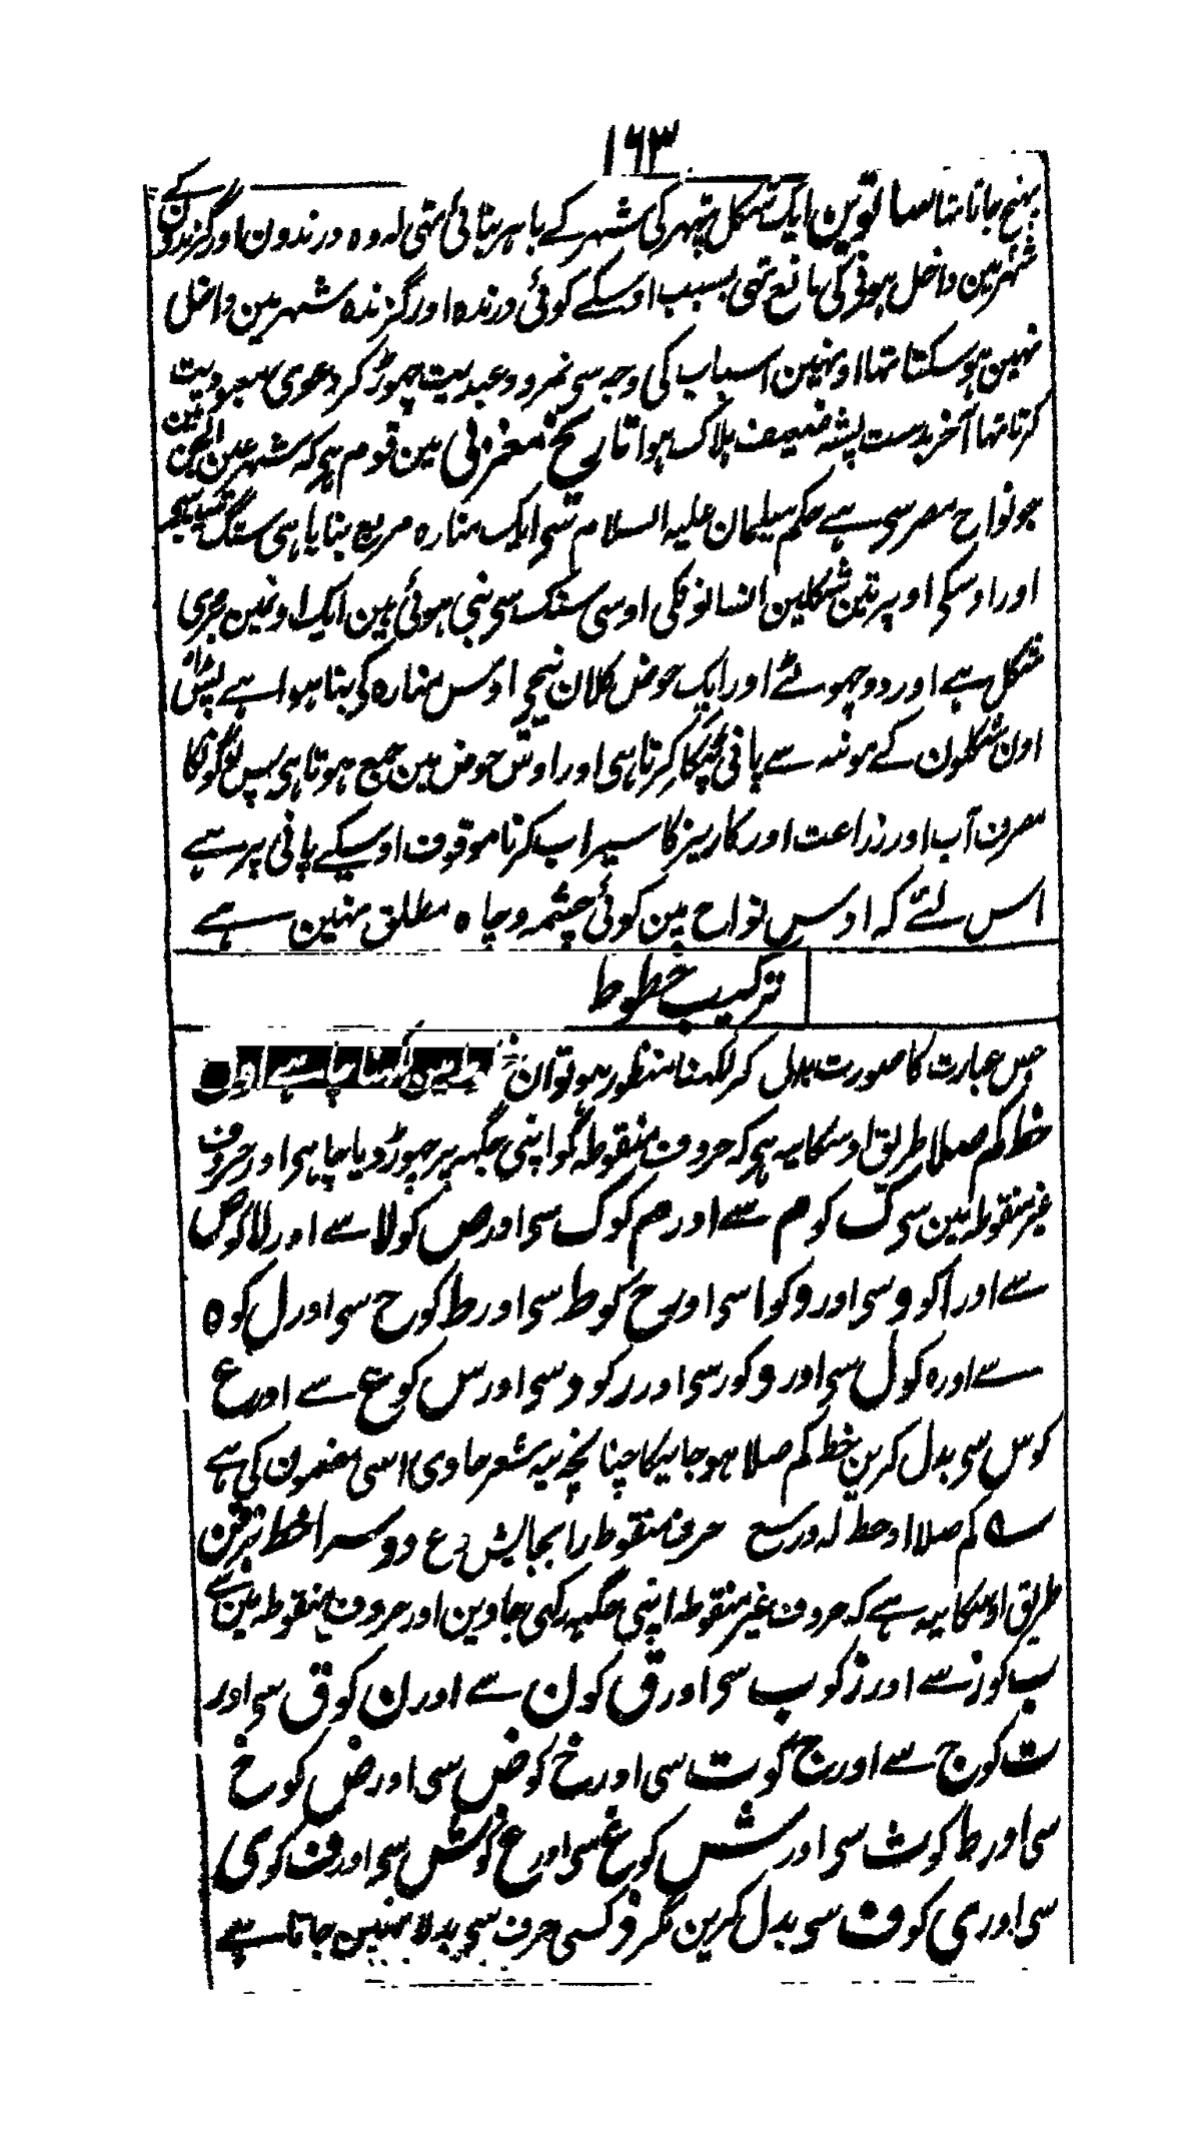 ۱۶۳
پہنچ جاتا تہا ساتوین ایک شکل پتہر کی شہر کے باہر بنائی تہی کہ وہ درندون اور گزندون کے
شہر مین داخل ہونی کی مانع تہی بسبب اوسکے کوئی درندہ اور گزندہ شہر مین داخل
نہین ہوسکتا تہا اونہین اسباب کی وجہ سی نمرود عبدیت چہوڑ کر دعوی معبودیت
کرتا تہا آخر بدست پشہ ضعیف ہلاک ہوا تاریخ مغربی مین مرقوم ہی کہ شہر عین الشمس مین
جو نواح مصر سی ہے حکم سلیمان علیہ السلام سی ایک منارہ مربع بنایا ہی سنگ
اور اوسکی اوپر تین شکلین انسانونکی اوسی سنگ سی بنی ہوئی ہین ایک اونمین بڑی
شکل ہے اور دو چہوٹے اور ایک حوض کلان نیچی اوس منارہ کی بنا ہوا ہے پس
اون شکلون کے مونہہ سے پانی ٹپکا کرتا ہی اور اوس حوض مین جمع ہوتا ہی پس لوگونکا
مصرف آب اور زراعت اور کاریز کا سیراب کرنا موقوف اوسیکے پانی پر ہے
اس لئے کہ اوس نواح مین کوئی چشمہ و چاہ مطلق نہین ہے
ترکیب خطوط
جس عبارت کا صورت بدل کر لکہنا منظور ہو تو ان
خط کم صلا طریق اوسکا یہ ہی کہ حروف منقوطہ کو اپنی جگہہ پر چہوڑ دیا چاہی اور حروف
غیر منقوطہ مین سی ک کو م سے اور م کو ک سی اور ص کو لا سے اور لا کو ص
سے اور ا کو و سی اور و کو ا سی اور ح کو ط سی اور ط کو ح سی اور ل کو ہ
سے اور ہ کو ل سی اور د کو ر سی اور ر کو د سی اور س کو ع سے اور ع
کو س سی بدل کرین خط کم صلا ہو جائیگا چنانچہ یہ شعر حاوی اسی مضمون کی ہے
کم صلا او حط لہ در سع حرف منقوط را بجایش دع دوسرا خط بزقن
طریق اوسکا یہ ہے کہ حروف غیر منقوطہ اپنی جگہہ رکہی جاوین اور حروف منقوطہ مین سے
ب کو ز سے اور ز کو ب سی اور ق کو ن سے اور ن کو ق سی اور
ت کو ج سے اور ج کو ت سی اور خ کو ض سی اور ض کو خ
سی اور ظ کو ث سی اور ش کو غ سی اور غ کو ش سی اور ف کو ی
سی اور ی کو ف سی بدل کرین مگر ذ کسی حرف سی بدلا نہین جاتا ہے